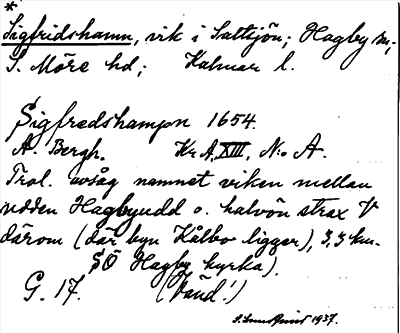 *
Sigfridshamn, vik i Saltsjön; Hagby sn;
S. Möre hd; Kalmar l.
Sigfredshampn 1654.
A. Bergh. Kr A, XIII, No A.
Trol. avsåg namnet viken mellan
udden Hagbyudd o. halvön strax V
därom (där byn Kålbo ligger), 3,3 km.
SÖ Hagby kyrka).
G. 17. (Vänd!)
1937.